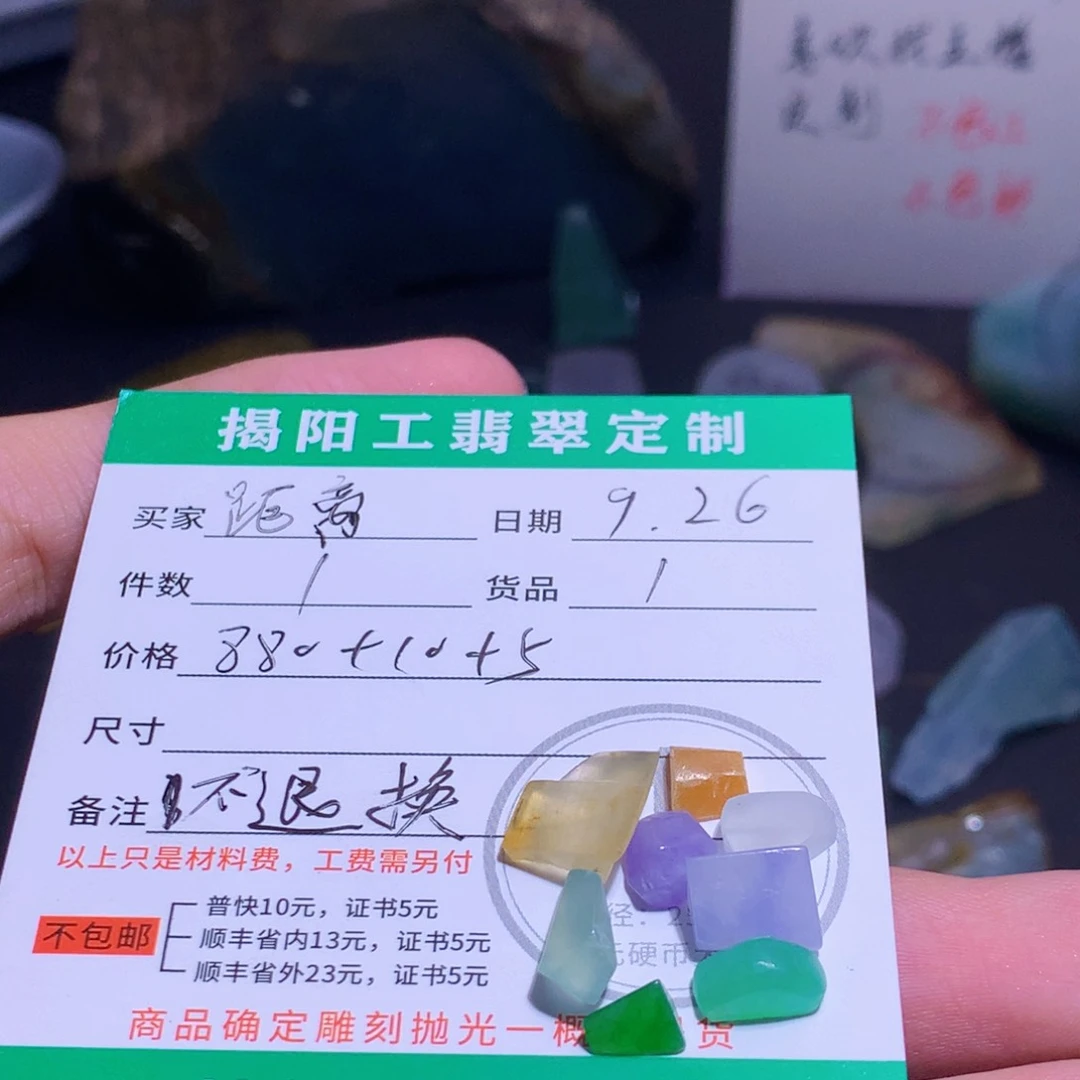 揭阳工翡翠定制
买家 距离 日期 9.26
件数 1 货品 1
价格 880+10+5
尺寸
备注 不退换
以上只是材料费，工费需另付
不包邮
普快10元，证书5元
顺丰省内13元，证书5元
顺丰省外23元，证书5元
径：25
元硬币
商品确定雕刻抛光一概 货